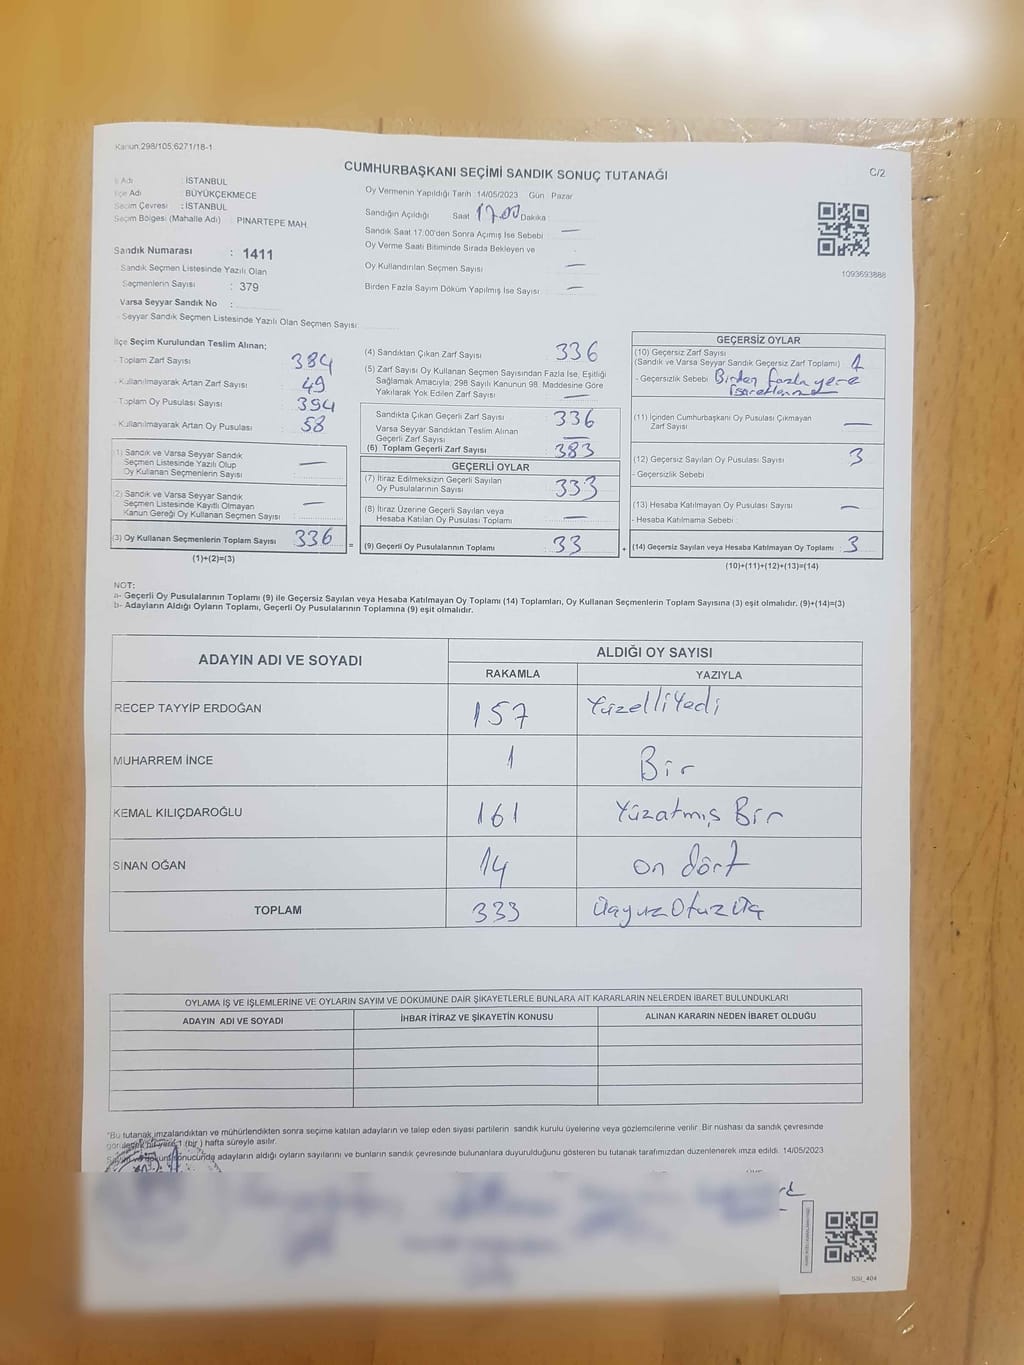 Kanun.298/105.6271/18-1
CUMHURBAŞKANI SEÇİMİ SANDIK SONUÇ TUTANAĞI
C/2
İl Adı : İSTANBUL
İlçe Adı : BÜYÜKÇEKMECE
Seçim Çevresi : İSTANBUL
Seçim Bölgesi (Mahalle Adı) : PINARTEPE MAH.
Sandık Numarası : 1411
Sandık Seçmen Listesinde Yazılı Olan
Seçmenlerin Sayısı : 379
Varsa Seyyar Sandık No :
Seyyar Sandık Seçmen Listesinde Yazılı Olan Seçmen Sayısı:
Oy Vermenin Yapıldığı Tarih :14/05/2023 Gün Pazar
Sandığın Açıldığı Saat 17.00 Dakika
Sandık Saat 17.00'den Sonra Açımış İse Sebebi : —
Oy Verme Saati Bitiminde Sırada Bekleyen ve
Oy Kullandırılan Seçmen Sayısı —
Birden Fazla Sayım Döküm Yapılmış İse Sayısı : —
1093693888
İlçe Seçim Kurulundan Teslim Alınan;
- Toplam Zarf Sayısı 384
- Kullanılmayarak Artan Zarf Sayısı : 49
- Toplam Oy Pusulası Sayısı 394
- Kullanılmayarak Artan Oy Pusulası : 58
(1) Sandık ve Varsa Seyyar Sandık
Seçmen Listesinde Yazılı Olup
Oy Kullanan Seçmenlerin Sayısı : —
(2) Sandık ve Varsa Seyyar Sandık
Seçmen Listesinde Kayıtlı Olmayan
Kanun Gereği Oy Kullanan Seçmen Sayısı : —
(3) Oy Kullanan Seçmenlerin Toplam Sayısı : 336 =
(1)+(2)=(3)
(4) Sandıktan Çıkan Zarf Sayısı : 336
(5) Zarf Sayısı Oy Kullanan Seçmen Sayısından Fazla İse, Eşitliği
Sağlamak Amacıyla; 298 Sayılı Kanunun 98. Maddesine Göre
Yakılarak Yok Edilen Zarf Sayısı : —
Sandıkta Çıkan Geçerli Zarf Sayısı : 336
Varsa Seyyar Sandıktan Teslim Alınan
Geçerli Zarf Sayısı : —
(6) Toplam Geçerli Zarf Sayısı : 383
GEÇERLİ OYLAR
(7) İtiraz Edilmeksizin Geçerli Sayılan
Oy Pusulalarının Sayısı : 333
(8) İtiraz Üzerine Geçerli Sayılan veya
Hesaba Katılan Oy Pusulası Toplamı : —
(9) Geçerli Oy Pusulalarının Toplamı : 33 +
GEÇERSİZ OYLAR
(10) Geçersiz Zarf Sayısı
(Sandık ve Varsa Seyyar Sandık Geçersiz Zarf Toplamı) :
- Geçersizlik Sebebi : Birden fazla yere
(11) İçinden Cumhurbaşkanı Oy Pusulası Çıkmayan
Zarf Sayısı : —
(12) Geçersiz Sayılan Oy Pusulası Sayısı : 3
- Geçersizlik Sebebi :
(13) Hesaba Katılmayan Oy Pusulası Sayısı : —
- Hesaba Katılmama Sebebi :
(14) Geçersiz Sayılan veya Hesaba Katılmayan Oy Toplamı : 3
(10)+(11)+(12)+(13)=(14)
NOT:
a- Geçerli Oy Pusulalarının Toplamı (9) ile Geçersiz Sayılan veya Hesaba Katılmayan Oy Toplamı (14) Toplamları, Oy Kullanan Seçmenlerin Toplam Sayısına (3) eşit olmalıdır. (9)+(14)=(3)
b- Adayların Aldığı Oyların Toplamı, Geçerli Oy Pusulalarının Toplamına (9) eşit olmalıdır.
ADAYIN ADI VE SOYADI ALDIĞI OY SAYISI
RAKAMLA YAZIYLA
RECEP TAYYİP ERDOĞAN 157 YüzelliYedi
MUHARREM İNCE 1 Bir
KEMAL KILIÇDAROĞLU 161 Yüzatmış Bir
SİNAN OĞAN 14 on dört
TOPLAM 333 üçyuzOtuzÜç
OYLAMA İŞ VE İŞLEMLERİNE VE OYLARIN SAYIM VE DÖKÜMÜNE DAİR ŞİKAYETLERLE BUNLARA AİT KARARLARIN NELERDEN İBARET BULUNDUKLARI
ADAYIN ADI VE SOYADI İHBAR İTİRAZ VE ŞİKAYETİN KONUSU ALINAN KARARIN NEDEN İBARET OLDUĞU
*Bu tutanak imzalandıktan ve mühürlendikten sonra seçime katılan adayların ve talep eden siyasi partilerin sandık kurulu üyelerine veya gözlemcilerine verilir. Bir nüshası da sandık çevresinde
görülecek bir yere 1 (bir) hafta süreyle asılır.
Sayım döküm sonucunda adayların aldığı oyların sayılarını ve bunların sandık çevresinde bulunanlara duyurulduğunu gösteren bu tutanak tarafımızdan düzenlenerek imza edildi. 14/05/2023
SSI_404